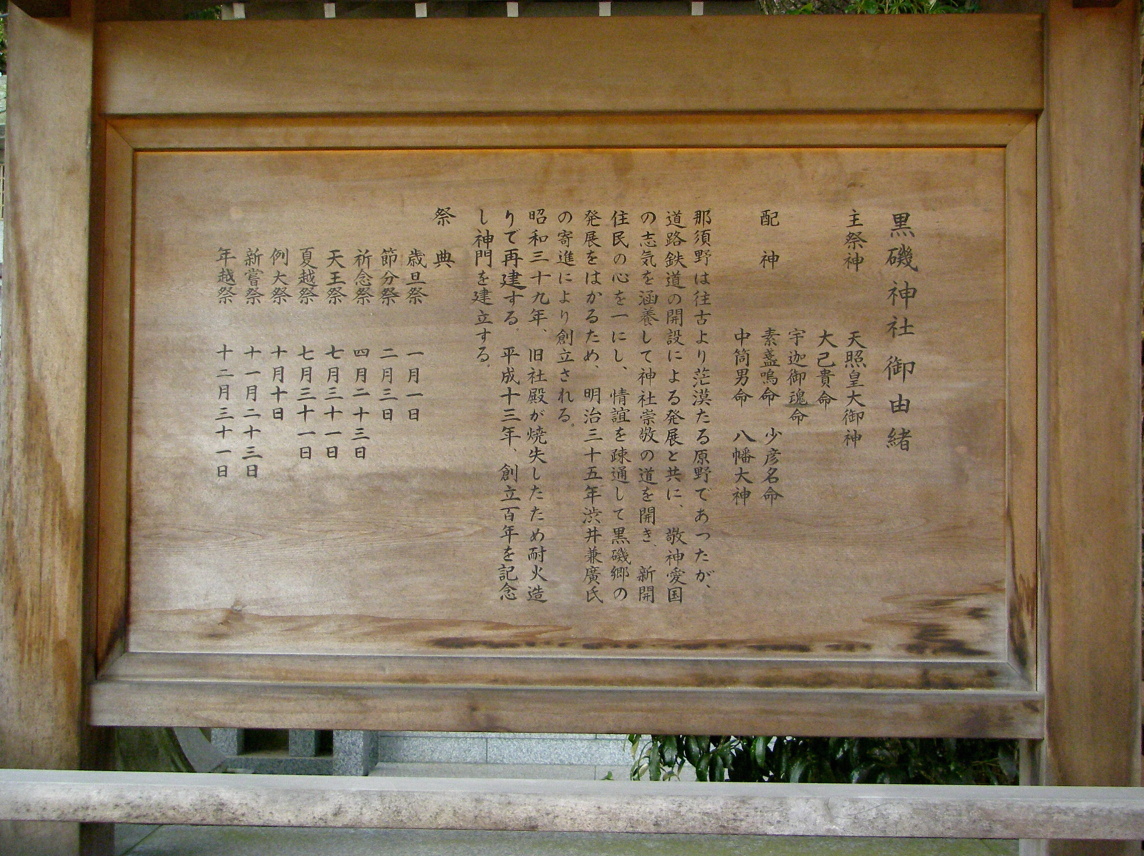 黒磯神社御由緒
主祭神　天照皇大御神
大己貴命
宇迦御魂命
配神　素盞鳴命　少彦名命
中筒男命　八幡大神
那須野は往古より茫漠たる原野であつたが、
道路鉄道の開設による発展と共に、敬神愛国
の志気を涵養して神社崇敬の道を開き、新開
住民の心を一にし、情誼を疎通して黒磯郷の
発展をはかるため、明治三十五年渋井兼廣氏
の寄進により創立される。
昭和三十九年、旧社殿が焼失したため耐火造
りで再建する。平成十三年、創立百年を記念
し神門を建立する。
祭典
歳旦祭　一月一日
節分祭　二月三日
祈念祭　四月二十三日
天王祭　七月三十一日
夏越祭　七月三十一日
例大祭　十月十日
新嘗祭　十一月二十三日
年越祭　十二月三十一日